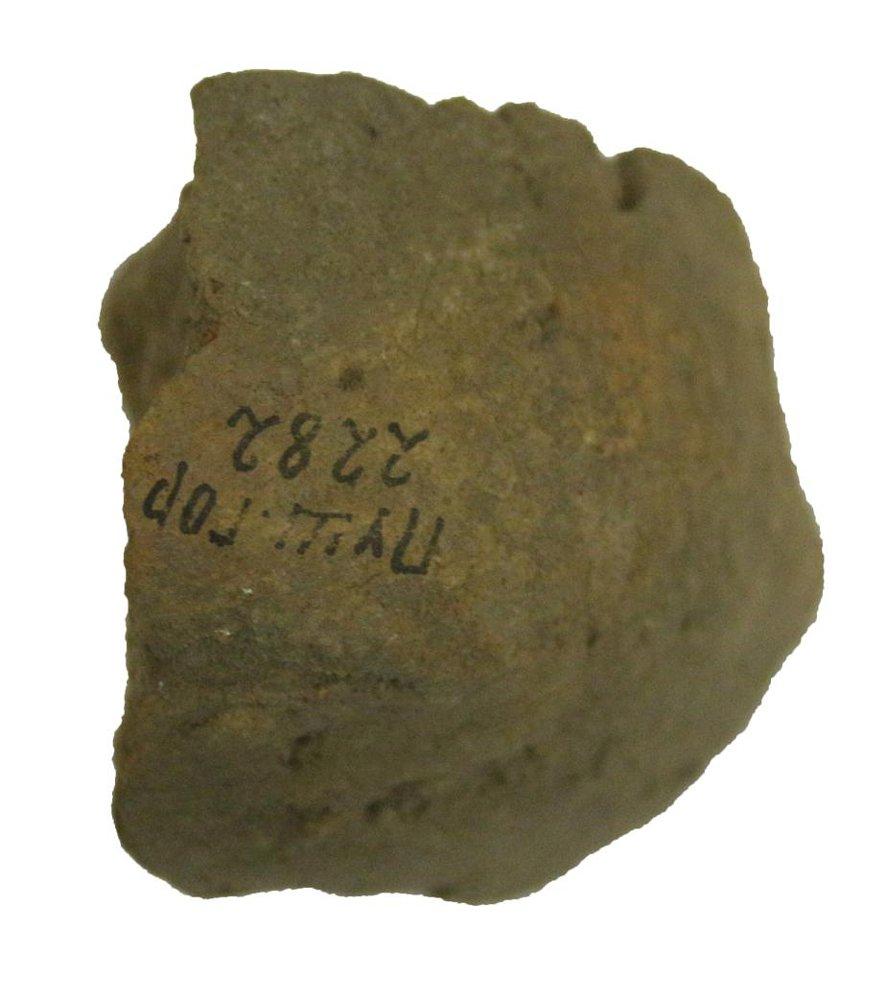 Пуш. гор
2282